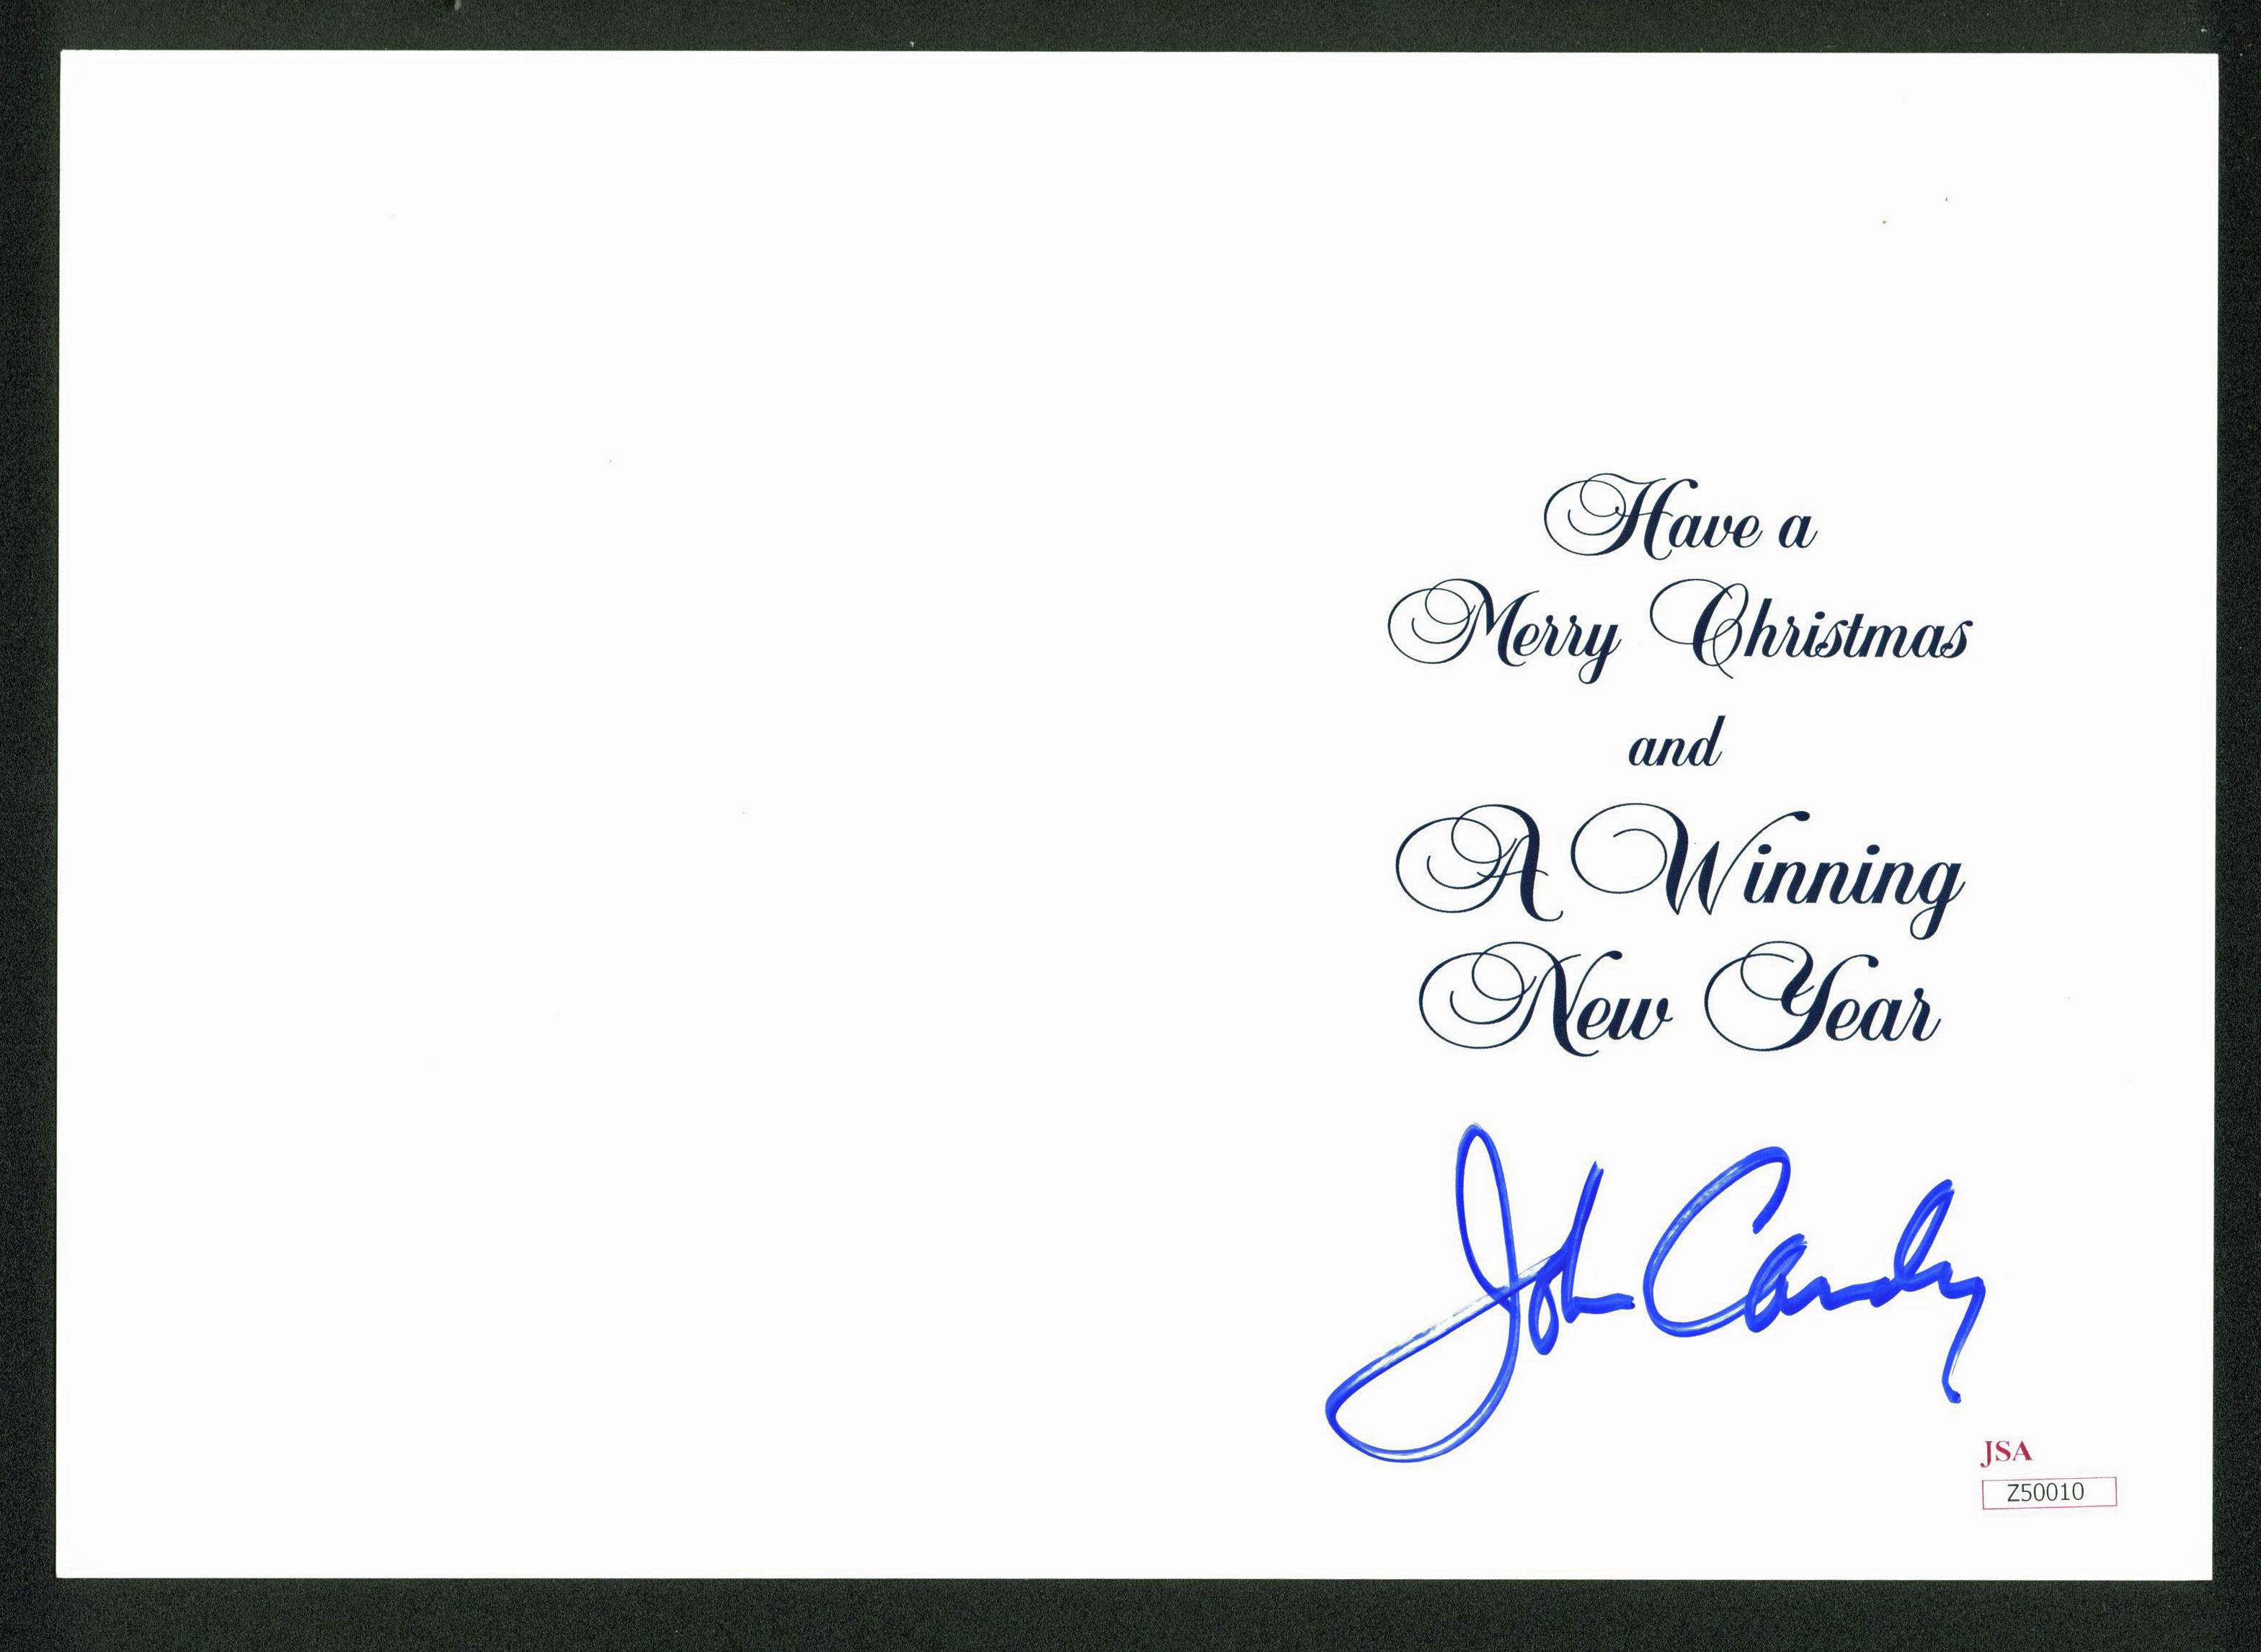 Have a
Merry Christmas
and
A Winning
New Year
John Candy
JSA
Z50010